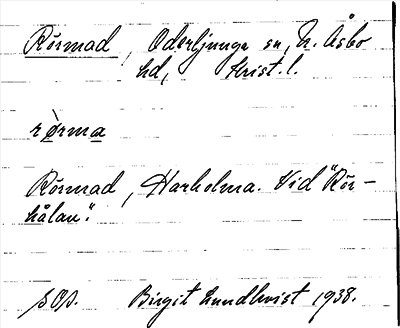 Rörmad, Oderljunga sn, N. Åsbo
hd, Krist. l.
rò̀rma
Rörmad, Harholma. Vid "Rör-
hålan".
sOp. Birgit Lundkvist 1938.